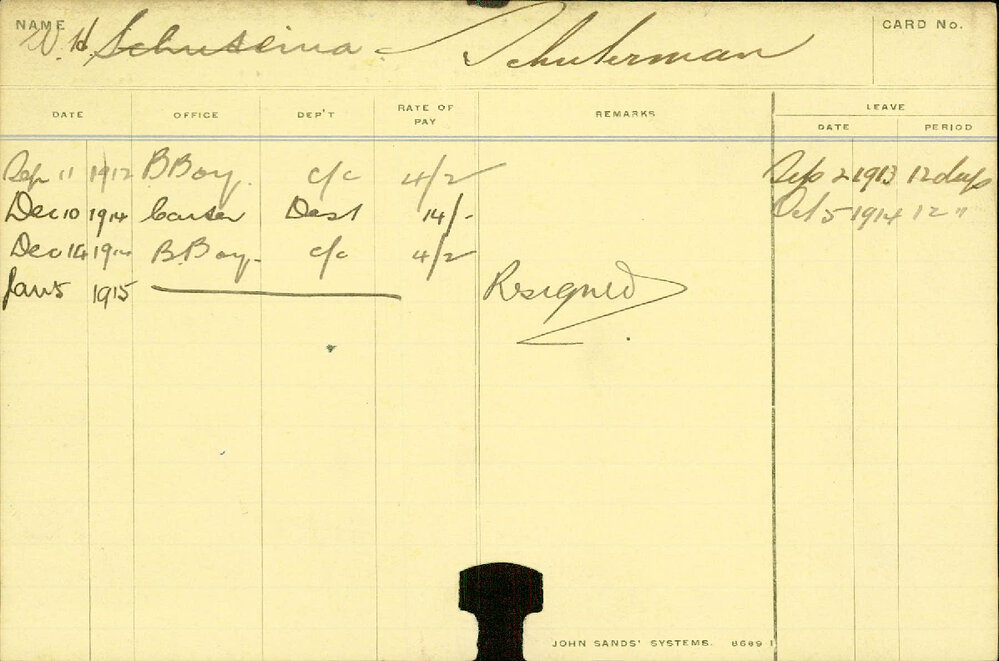 NAME W. H. Schuseina Schuterman CARD No.
DATE OFFICE DEP'T RATE OF PAY REMARKS LEAVE
DATE PERIOD
Sep 11 1912 B Boy. c/c 4/2 Sep 2 1913 12 days
Dec 10 1914 Carter Dest 14/- Oct 5 1914 12 "
Dec 14 1914 B. Boy. c/c 4/2
Jan 5 1915 Resigned
JOHN SANDS' SYSTEMS. 8689